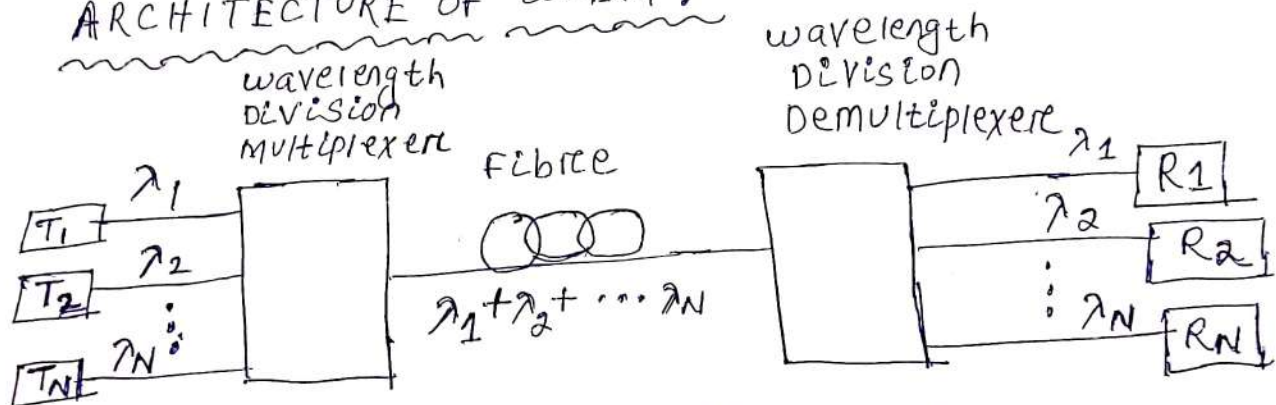 ARCHITECTURE OF
wavelength
DIVISION
MULTIPLEXER
Fibre
wavelength
DIVISION
Demultiplexer
T1
λ1
T2
λ2
TN
λN
λ1+λ2+ ... λN
λ1
R1
λ2
R2
λN
RN